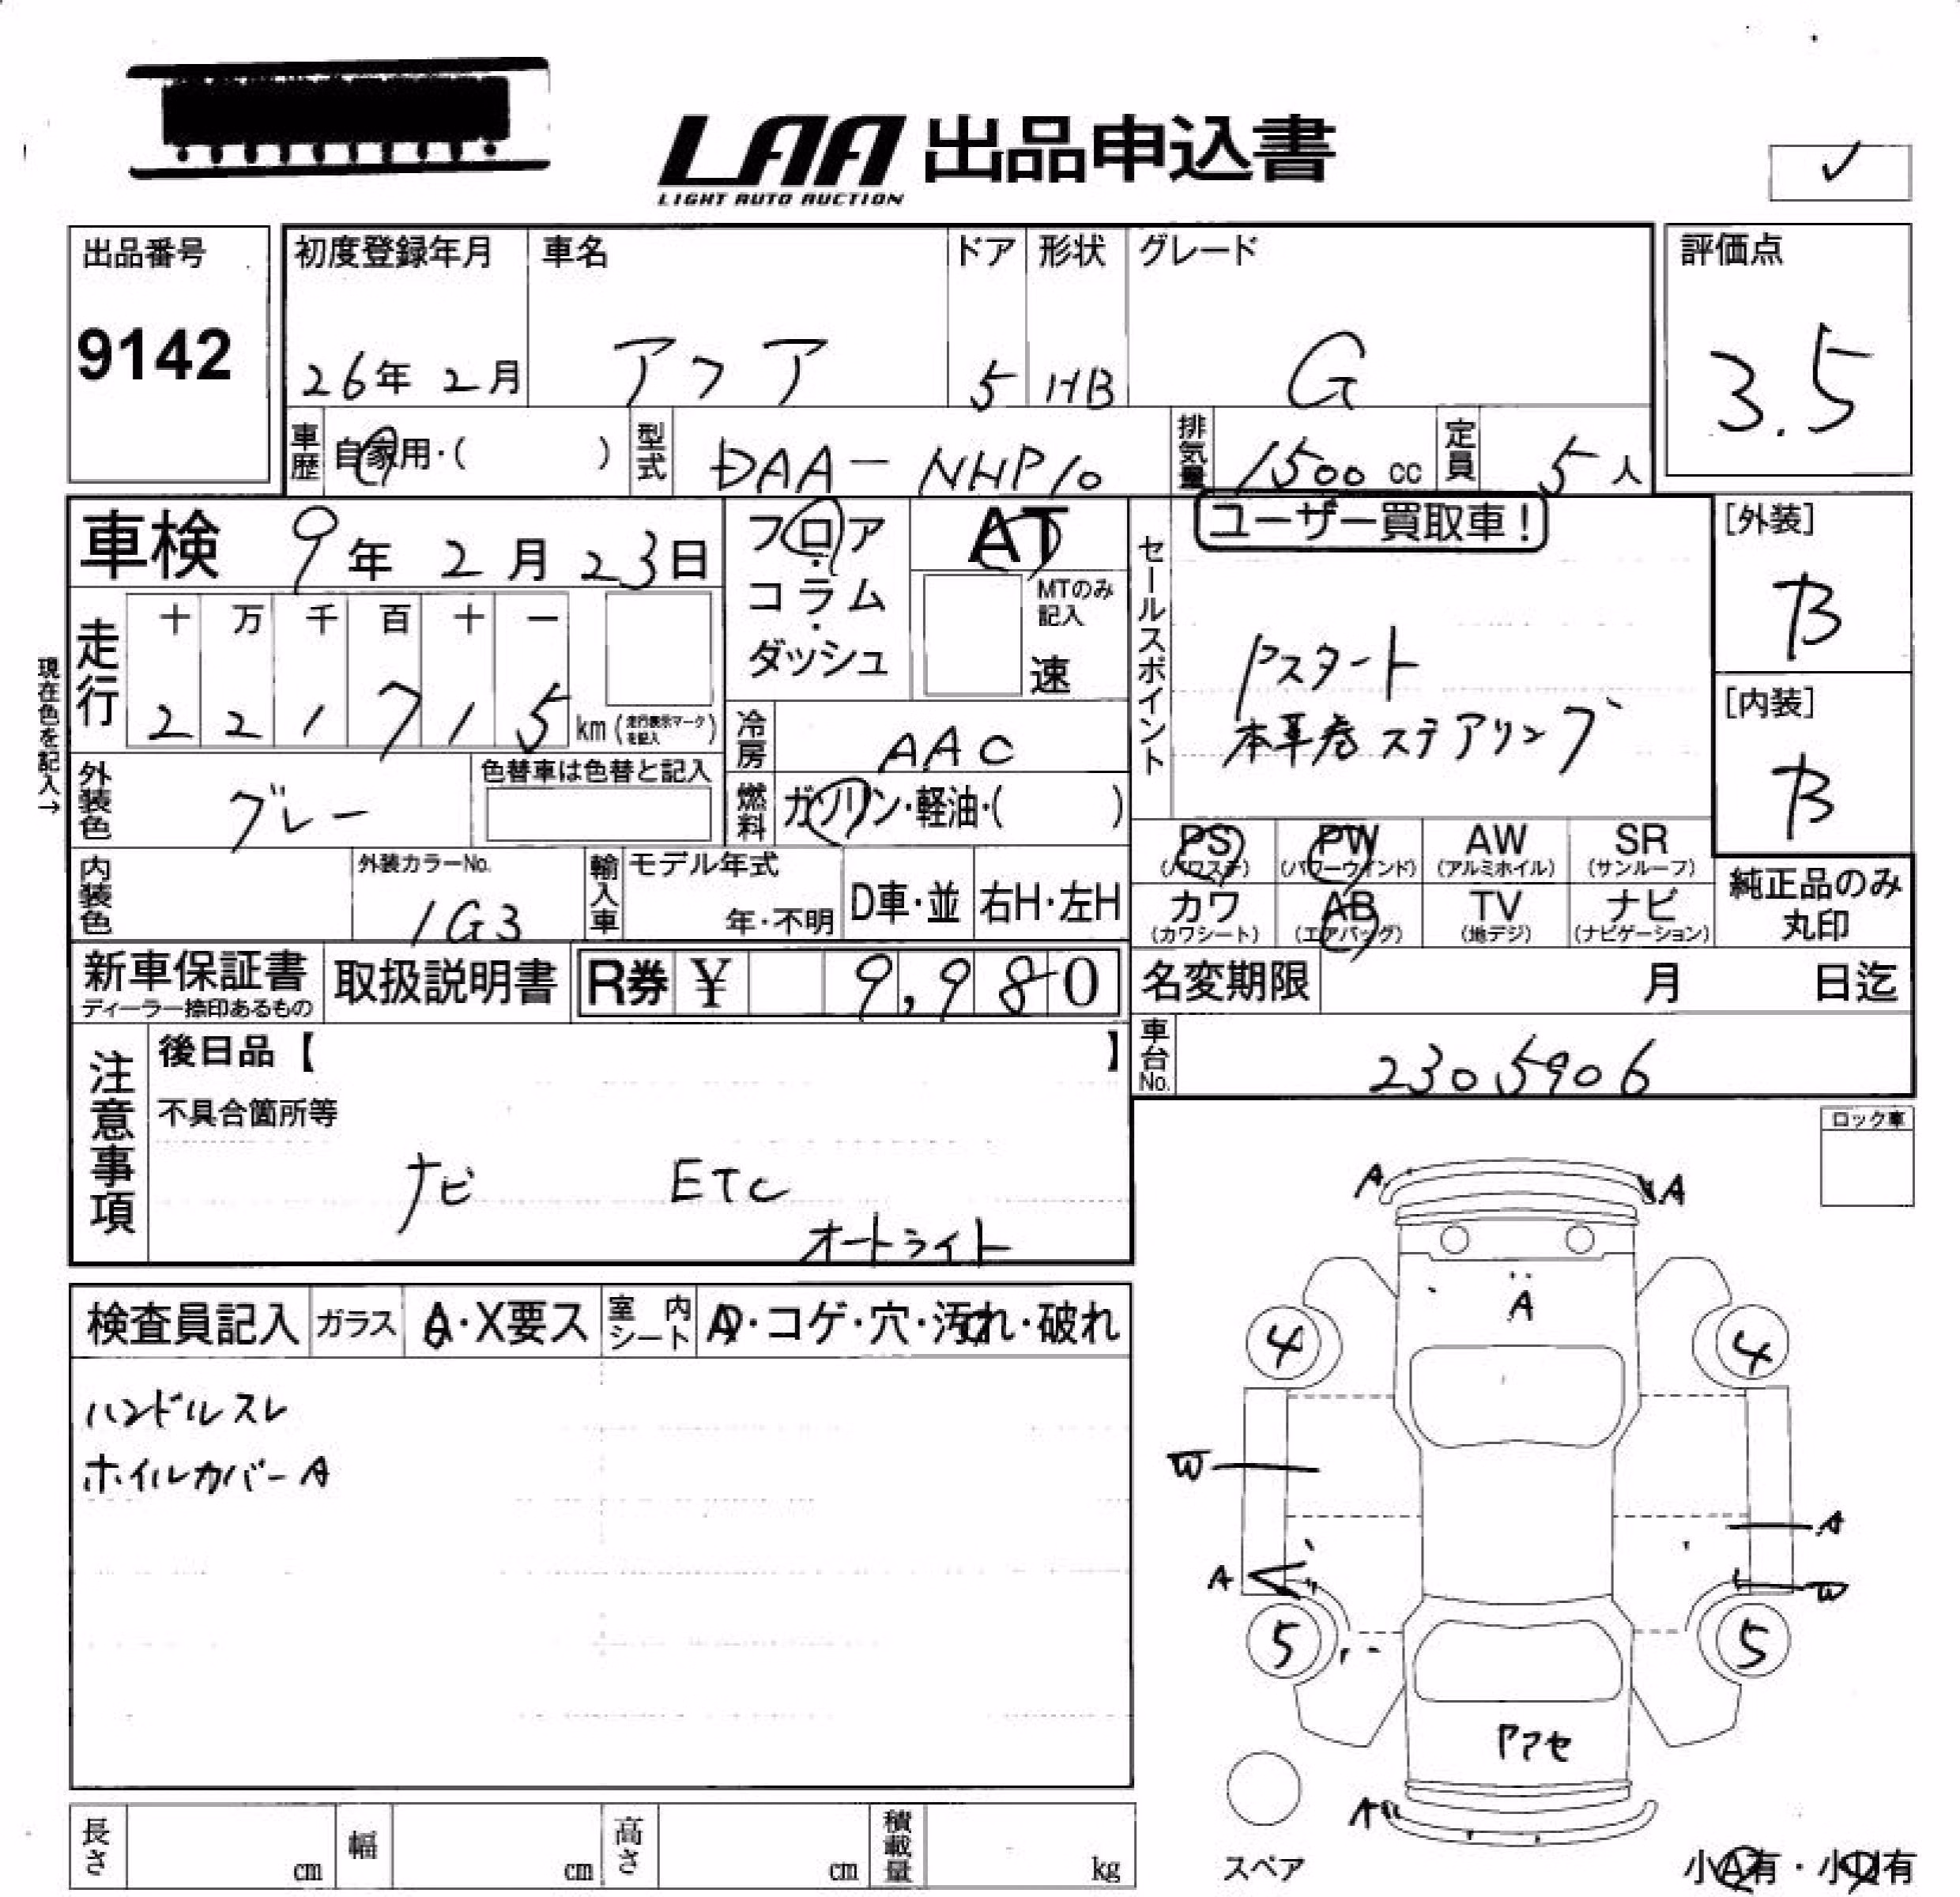 LAA 出品申込書
LIGHT AUTO AUCTION
✓
出品番号
9142
初度登録年月
26年 2月
車名
アクア
ドア
5
形状
HB
グレード
G
評価点
3.5
車歴
自家用・( )
型式
DAA-NHP10
排気量
1500 cc
定員
5人
車検 9年 2月 23日
フロア・コラム・ダッシュ
AT
MTのみ記入
速
セールスポイント
ユーザー買取車!
Pスタート
本革巻ステアリング
[外装]
B
[内装]
B
現在色を記入→
走行
十 万 千 百 十 一
2 2 1 7 1 5 km (走行表示マークを記入)
冷房
AAC
外装色
グレー
色替車は色替と記入
燃料
ガソリン・軽油・( )
PS (パワステ)
PW (パワーウインド)
AW (アルミホイル)
SR (サンルーフ)
カワ (カワシート)
AB (エアバッグ)
TV (地デジ)
ナビ (ナビゲーション)
純正品のみ丸印
内装色
外装カラーNo.
1G3
輸入車
モデル年式
年・不明
D車・並
右H・左H
新車保証書
ディーラー捺印あるもの
取扱説明書
R券 ¥ 9,980
名変期限 月 日迄
車台No.
2305906
注意事項
後日品【 】
不具合箇所等
ナビ ETC
オートライト
ロック車
検査員記入
ガラス
A・X要ス
室内シート
A・コゲ・穴・汚れ・破れ
ハンドルスレ
ホイルカバーA
A A
A
4 4
W
A
A W
5 5
A
スペア
小A有・小U有
長さ cm
幅 cm
高さ cm
積載量 kg